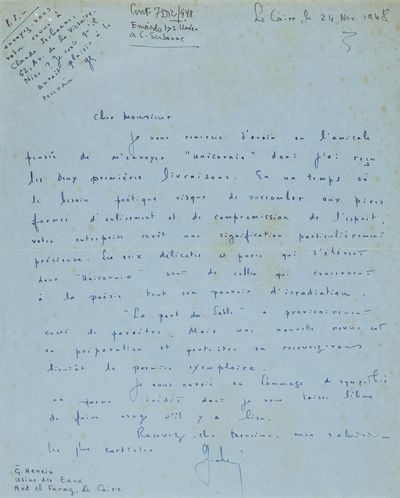 P.S.-
envoyez-vous
votre revue à
Claude Serbanne,
52. Av. de la Victoire,
Nice ? Je crois qu'il
aurait plaisir à la
recevoir
Cont. 7 DIZ/948
Enviado 1 y 2 Unico
a C. Serbanne
Le Caire, le 24 Nov. 1948
Cher Monsieur
Je vous remercie d'avoir eu l'amicale
pensée de m'envoyer "Unicornio" dont j'ai reçu
les deux premières livraisons. En un temps où
le besoin poétique risque de succomber aux pires
formes d'enlisement et de compromission de l'esprit,
votre entreprise revêt une signification particulièrement
précieuse. Les voix délicates et pures qui s'élèvent
dans "Unicornio" sont de celles qui conservent
à la poésie tout son pouvoir d'irradiation.
"La part du Sable" a provisoirement
cessé de paraître. Mais une nouvelle revue est
en préparation et peut-être en recevrez-vous
bientôt le premier exemplaire.
Je vous envoie en hommage de sympathie
un poème inédit dont je vous laisse libre
de faire usage s'il y a lieu.
Recevez, cher Monsieur, mes salutations
les plus cordiales.
G. Henein
Usine des Eaux
Rod el Farag, Le Caire